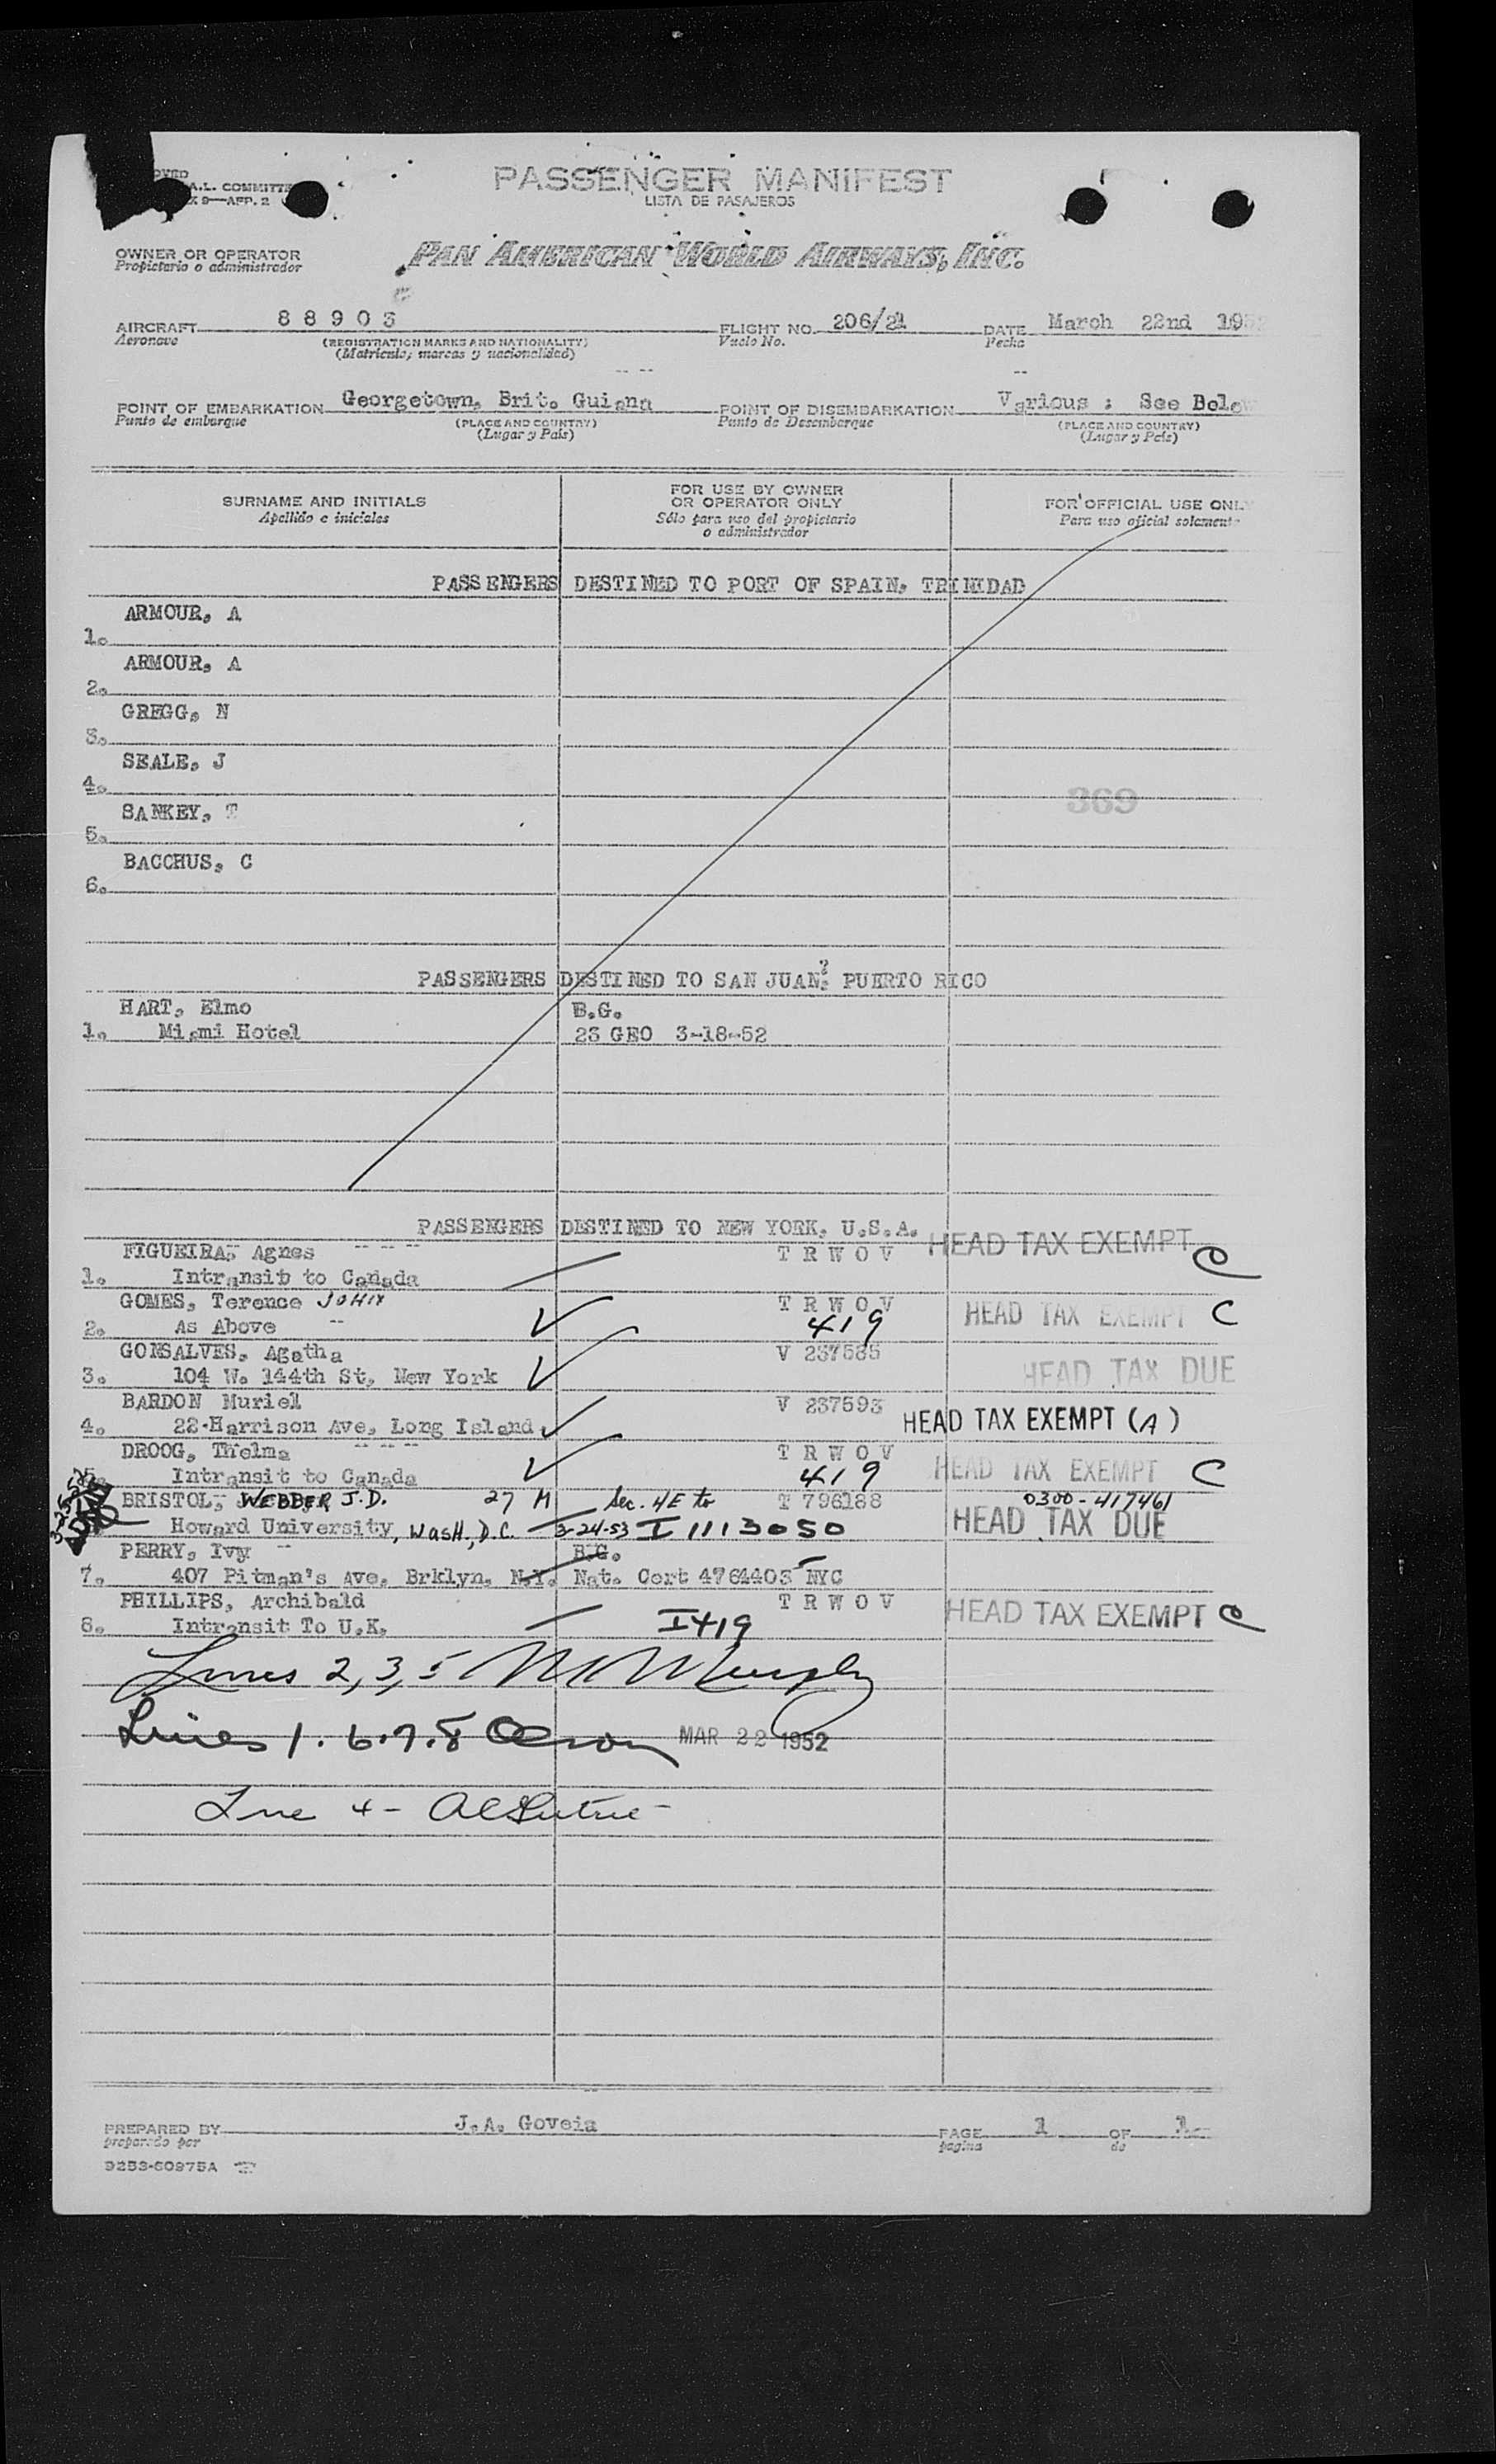 PASSENGER MANIFEST
LISTA DE PASAJEROS
A.L. COMMITTE
9—APP. 2
OWNER OR OPERATOR
Propietario o administrador
PAN AMERICAN WORLD AIRWAYS, INC.
AIRCRAFT 88903 FLIGHT NO. 206/21 DATE March 22nd 195
Aeronave (REGISTRATION MARKS AND NATIONALITY) Vuelo No. Fecha
(Matrícula; marcas y nacionalidad)
POINT OF EMBARKATION Georgetown, Brit. Guiana POINT OF DISEMBARKATION Various : See Below
Punto de embarque (PLACE AND COUNTRY) Punto de Desembarque (PLACE AND COUNTRY)
(Lugar y País) (Lugar y País)
SURNAME AND INITIALS FOR USE BY OWNER OR OPERATOR ONLY FOR OFFICIAL USE ONLY
Apellido e iniciales Sólo para uso del propietario o administrador Para uso oficial solamente
PASSENGERS DESTINED TO PORT OF SPAIN, TRINIDAD
ARMOUR, A
1.
ARMOUR, A
2.
GREGG, N
3.
SEALE, J
4. 369
SANKEY, T
5.
BACCHUS, C
6.
PASSENGERS DESTINED TO SAN JUAN, PUERTO RICO
HART, Elmo B.G.
1. Miami Hotel 23 GEO 3-18-52
PASSENGERS DESTINED TO NEW YORK, U.S.A.
FIGUEIRA, Agnes --- T R W O V HEAD TAX EXEMPT C
1. Intransit to Canada
GOMES, Terence JOHN T R W O V HEAD TAX EXEMPT C
2. As Above -- 419
GONSALVES, Agatha V 237585 HEAD TAX DUE
3. 104 W. 144th St, New York
BARDON Muriel V 237593 HEAD TAX EXEMPT (A)
4. 22 Harrison Ave, Long Island.
DROOG, Thelma --- T R W O V HEAD TAX EXEMPT C
5. Intransit to Canada 419
BRISTOL, WEBBER J.D. 27 M Sec. 4E to T 796188 0300-417461
Howard University, WASH., D.C. 3-24-53 I 1113050 HEAD TAX DUE
PERRY, Ivy B.G.
7. 407 Pitman's Ave, Brklyn, N.Y. Nat. Cert 4764403 NYC
PHILLIPS, Archibald T R W O V HEAD TAX EXEMPT C
8. Intransit To U.K. I419
Lines 2, 3, 5 M Murphy
Lines 1. 6. 7. 8 Olson MAR 22 1952
Line 4 -
PREPARED BY J.A. Goveia PAGE 1 OF 1
preparado por página de
9253-60975A